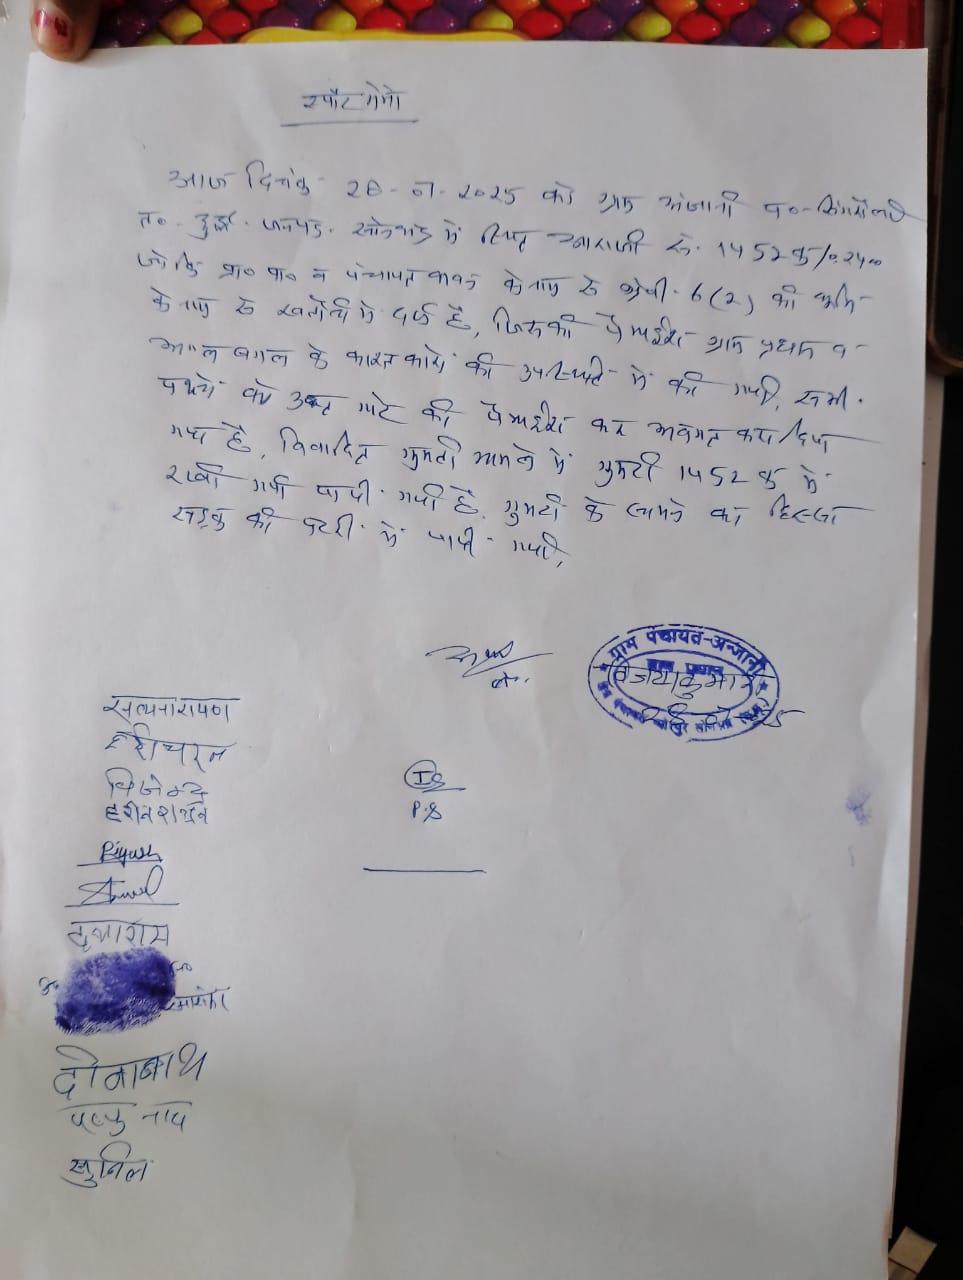 स्पॉट मेमो
आज दिनांक 28-7-2025 को ग्राम अंजानी प०-
त०- दुद्धी जनपद- सोनभद्र में स्थित आराजी नं. 1452क/0.2400
जो कि प्रा० पा० व पंचायत भवन के नाम से श्रेणी-6(2) की भूमि-
के नाम से खतौनी में दर्ज है, जिसकी पैमाईश ग्राम प्रधान व
अगल बगल के काश्तकारों की उपस्थिति में की गयी, सभी
पक्षों को उक्त गाटे की पैमाईश कर अवगत करा दिया
गया है, विवादित गुमटी मामले में गुमटी 1452क में
रखी गयी पायी गयी है, गुमटी के सामने का हिस्सा
सड़क की पटरी में पायी गयी,
ग्राम पंचायत-अन्जानी
ग्राम प्रधान
विजय कुमार
सत्यनारायण
हरीचरन
विजेन्द्र
Piyush
P.S
दयाराम
दीनानाथ
सुनिल